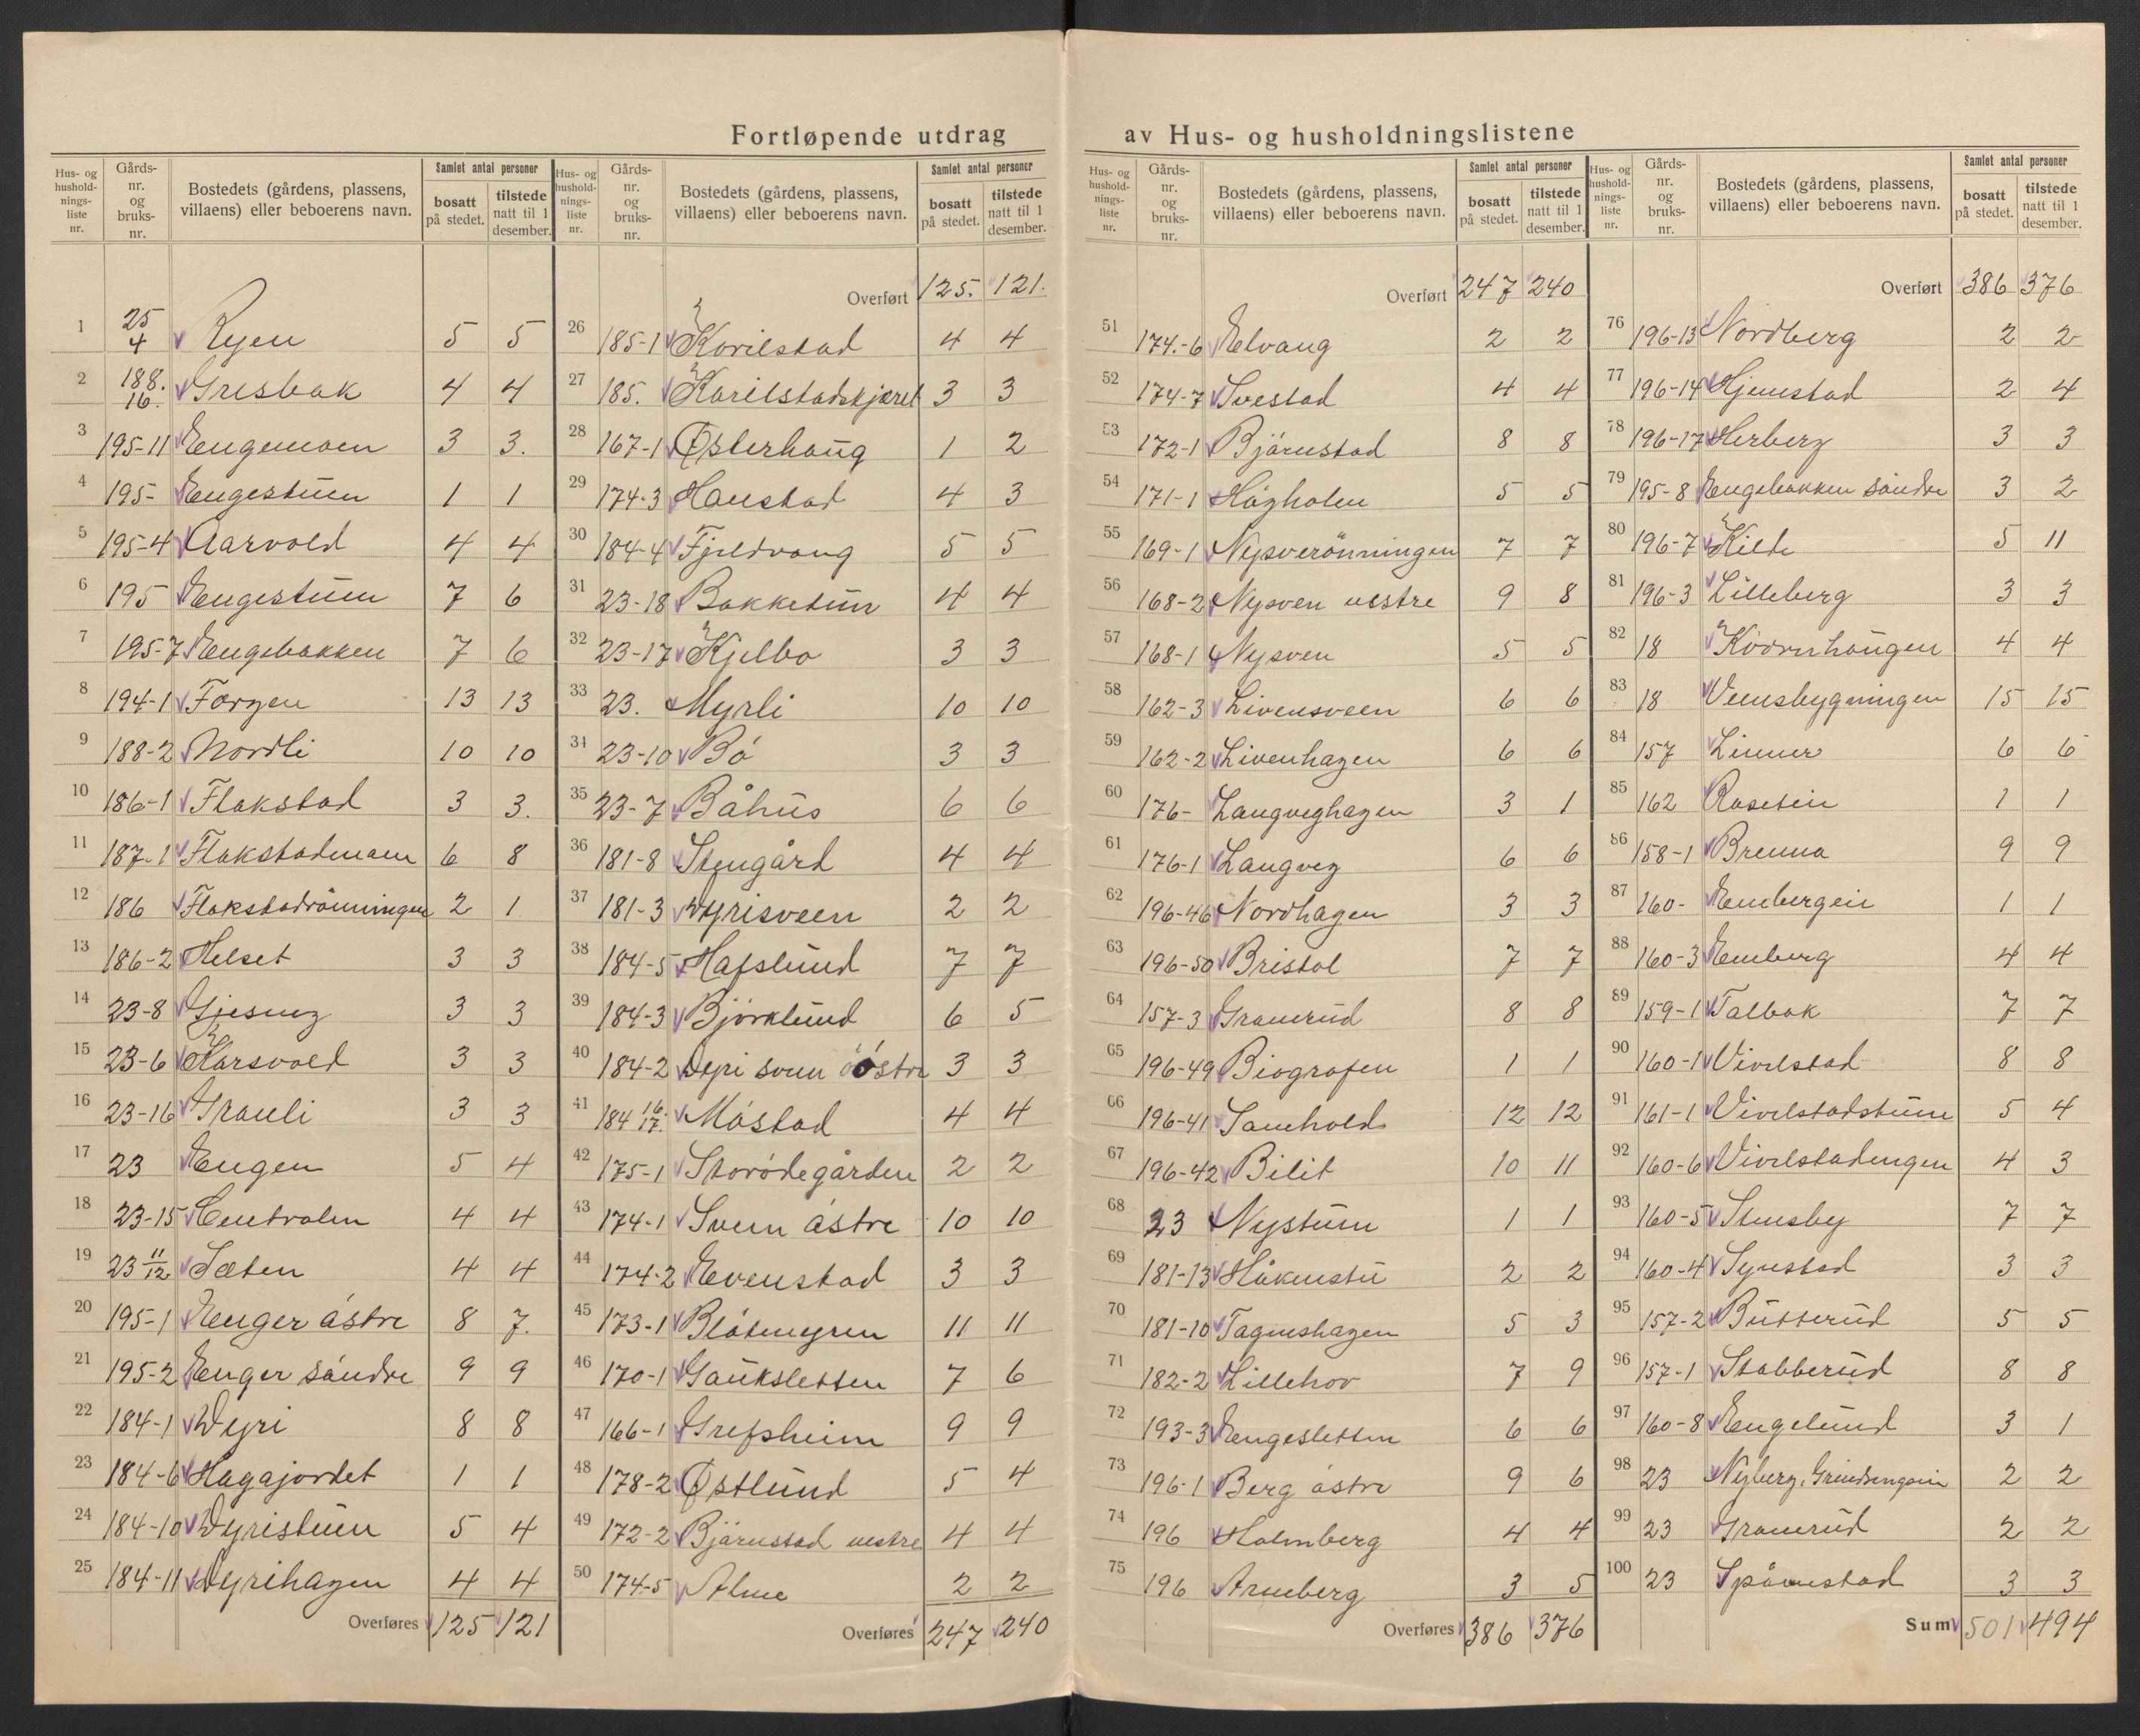 Fortløpende utdrag av Hus- og husholdningslistene
Hus- og husholdnings-liste nr. Gårds-nr. og bruks-nr. Bostedets (gårdens, plassens, villaens) eller beboerens navn. Samlet antal personer bosatt på stedet. tilstede natt til 1 desember.
1 25 4 Ryen 5 5
2 188. 16. Gresbak 4 4
3 195-11 Engemoen 3 3.
4 195- Engestuen 1 1
5 195-4 Aarvold 4 4
6 195 Engestuen 7 6
7 195-7 Engebakken 7 6
8 194-1 Forgen 13 13
9 188-2 Nordli 10 10
10 186-1 Flakstad 3 3.
11 187-1 Flakstadmoen 6 8
12 186 Flakstadrönningen 2 1
13 186-2 Helset 3 3
14 23-8 Gjesmoz 3 3
15 23-6 Karsvold 3 3
16 23-16 Granli 3 3
17 23 Engen 5 4
18 23-15 Centralen 4 4
19 23 11/12 Sæten 4 4
20 195-1 Enger östre 8 7.
21 195-2 Enger söndre 9 9
22 184-1 Dyri 8 8
23 184-6 Hagajordet 1 1
24 184-10 Dyristuen 5 4
25 184-11 Dyrihagen 4 4
Overføres 125 121
Hus- og husholdnings-liste nr. Gårds-nr. og bruks-nr. Bostedets (gårdens, plassens, villaens) eller beboerens navn. Samlet antal personer bosatt på stedet. tilstede natt til 1 desember.
Overført 125. 121.
26 185-1 Korilstad 4 4
27 185. Karilstadskjæret 3 3
28 167-1 Østerhaug 1 2
29 174-3 Hanstad 4 3
30 184-4 Fjeldvang 5 5
31 23-18 Bakketun 4 4
32 23-17 Kjelbo 3 3
33 23. Myrli 10 10
34 23-10 Bö 3 3
35 23-7 Båhus 6 6
36 181-8 Stengård 4 4
37 181-3 Dyrisveen 2 2
38 184-5 Hafslund 7 7
39 184-3 Björklund 6 5
40 184-2 Dyri sveen östre 3 3
41 184 16. 17. Möstad 4 4
42 175-1 Storödegården 2 2
43 174-1 Sveen östre 10 10
44 174-2 Evenstad 3 3
45 173-1 Blötmyren 11 11
46 170-1 Gauksletten 7 6
47 166-1 Grefsheim 9 9
48 178-2 Østlund 5 4
49 172-2 Björnstad vestre 4 4
50 174-5 Alme 2 2
Overføres 247 240
Hus- og husholdnings-liste nr. Gårds-nr. og bruks-nr. Bostedets (gårdens, plassens, villaens) eller beboerens navn. Samlet antal personer bosatt på stedet. tilstede natt til 1 desember.
Overført 247 240
51 174.-6 Elvang 2 2
52 174-7 Svestad 4 4
53 172-1 Björnstad 8 8
54 171-1 Högholen 5 5
55 169-1 Nysverönningen 7 7
56 168-2 Nysven vestre 9 8
57 168-1 Nysven 5 5
58 162-3 Livensveen 6 6
59 162-2 Livenhagen 6 6
60 176- Langveghagen 3 1
61 176-1 Langveg 6 6
62 196-46 Nordhagen 3 3
63 196-50 Bristol 7 7
64 157-3 Granerud 8 8
65 196-49 Biografen 1 1
66 196-41 Samhold 12 12
67 196-42 Bilit 10 11
68 23 Nystuen 1 1
69 181-13 Håkenstu 2 2
70 181-10 Tagmshagen 5 3
71 182-2 Lillehov 7 9
72 193-3 Engesletten 6 6
73 196-1 Berg östre 9 6
74 196 Holmberg 4 4
75 196 Arneberg 3 5
Overføres 386 376
Hus- og husholdnings-liste nr. Gårds-nr. og bruks-nr. Bostedets (gårdens, plassens, villaens) eller beboerens navn. Samlet antal personer bosatt på stedet. tilstede natt til 1 desember.
Overført 386 376
76 196-13 Nordberg 2 2
77 196-14 Hjemstad 2 4
78 196-17 Herberg 3 3
79 195-8 Engebakken söndre 3 2
80 196-7 Kilde 5 11
81 196-3 Lilleberg 3 3
82 18 Kvörnhaugen 4 4
83 18 Veensbygningen 15 15
84 157 Linner 6 6
85 162 Rosetein 1 1
86 158-1 Brenna 9 9
87 160- Embergeie 1 1
88 160-3 Emberg 4 4
89 159-1 Talbak 7 7
90 160-1 Vivelstad 8 8
91 161-1 Vivelstadstuen 5 4
92 160-6 Vivelstadengen 4 3
93 160-5 Stensby 7 7
94 160-4 Synstad 3 3
95 157-2 Butterud 5 5
96 157-1 Stabberud 8 8
97 160-8 Engelund 3 1
98 23 Nyberg, 2 2
99 23 Granerud 2 2
100 23 Spånstad 3 3
Sum 501 494